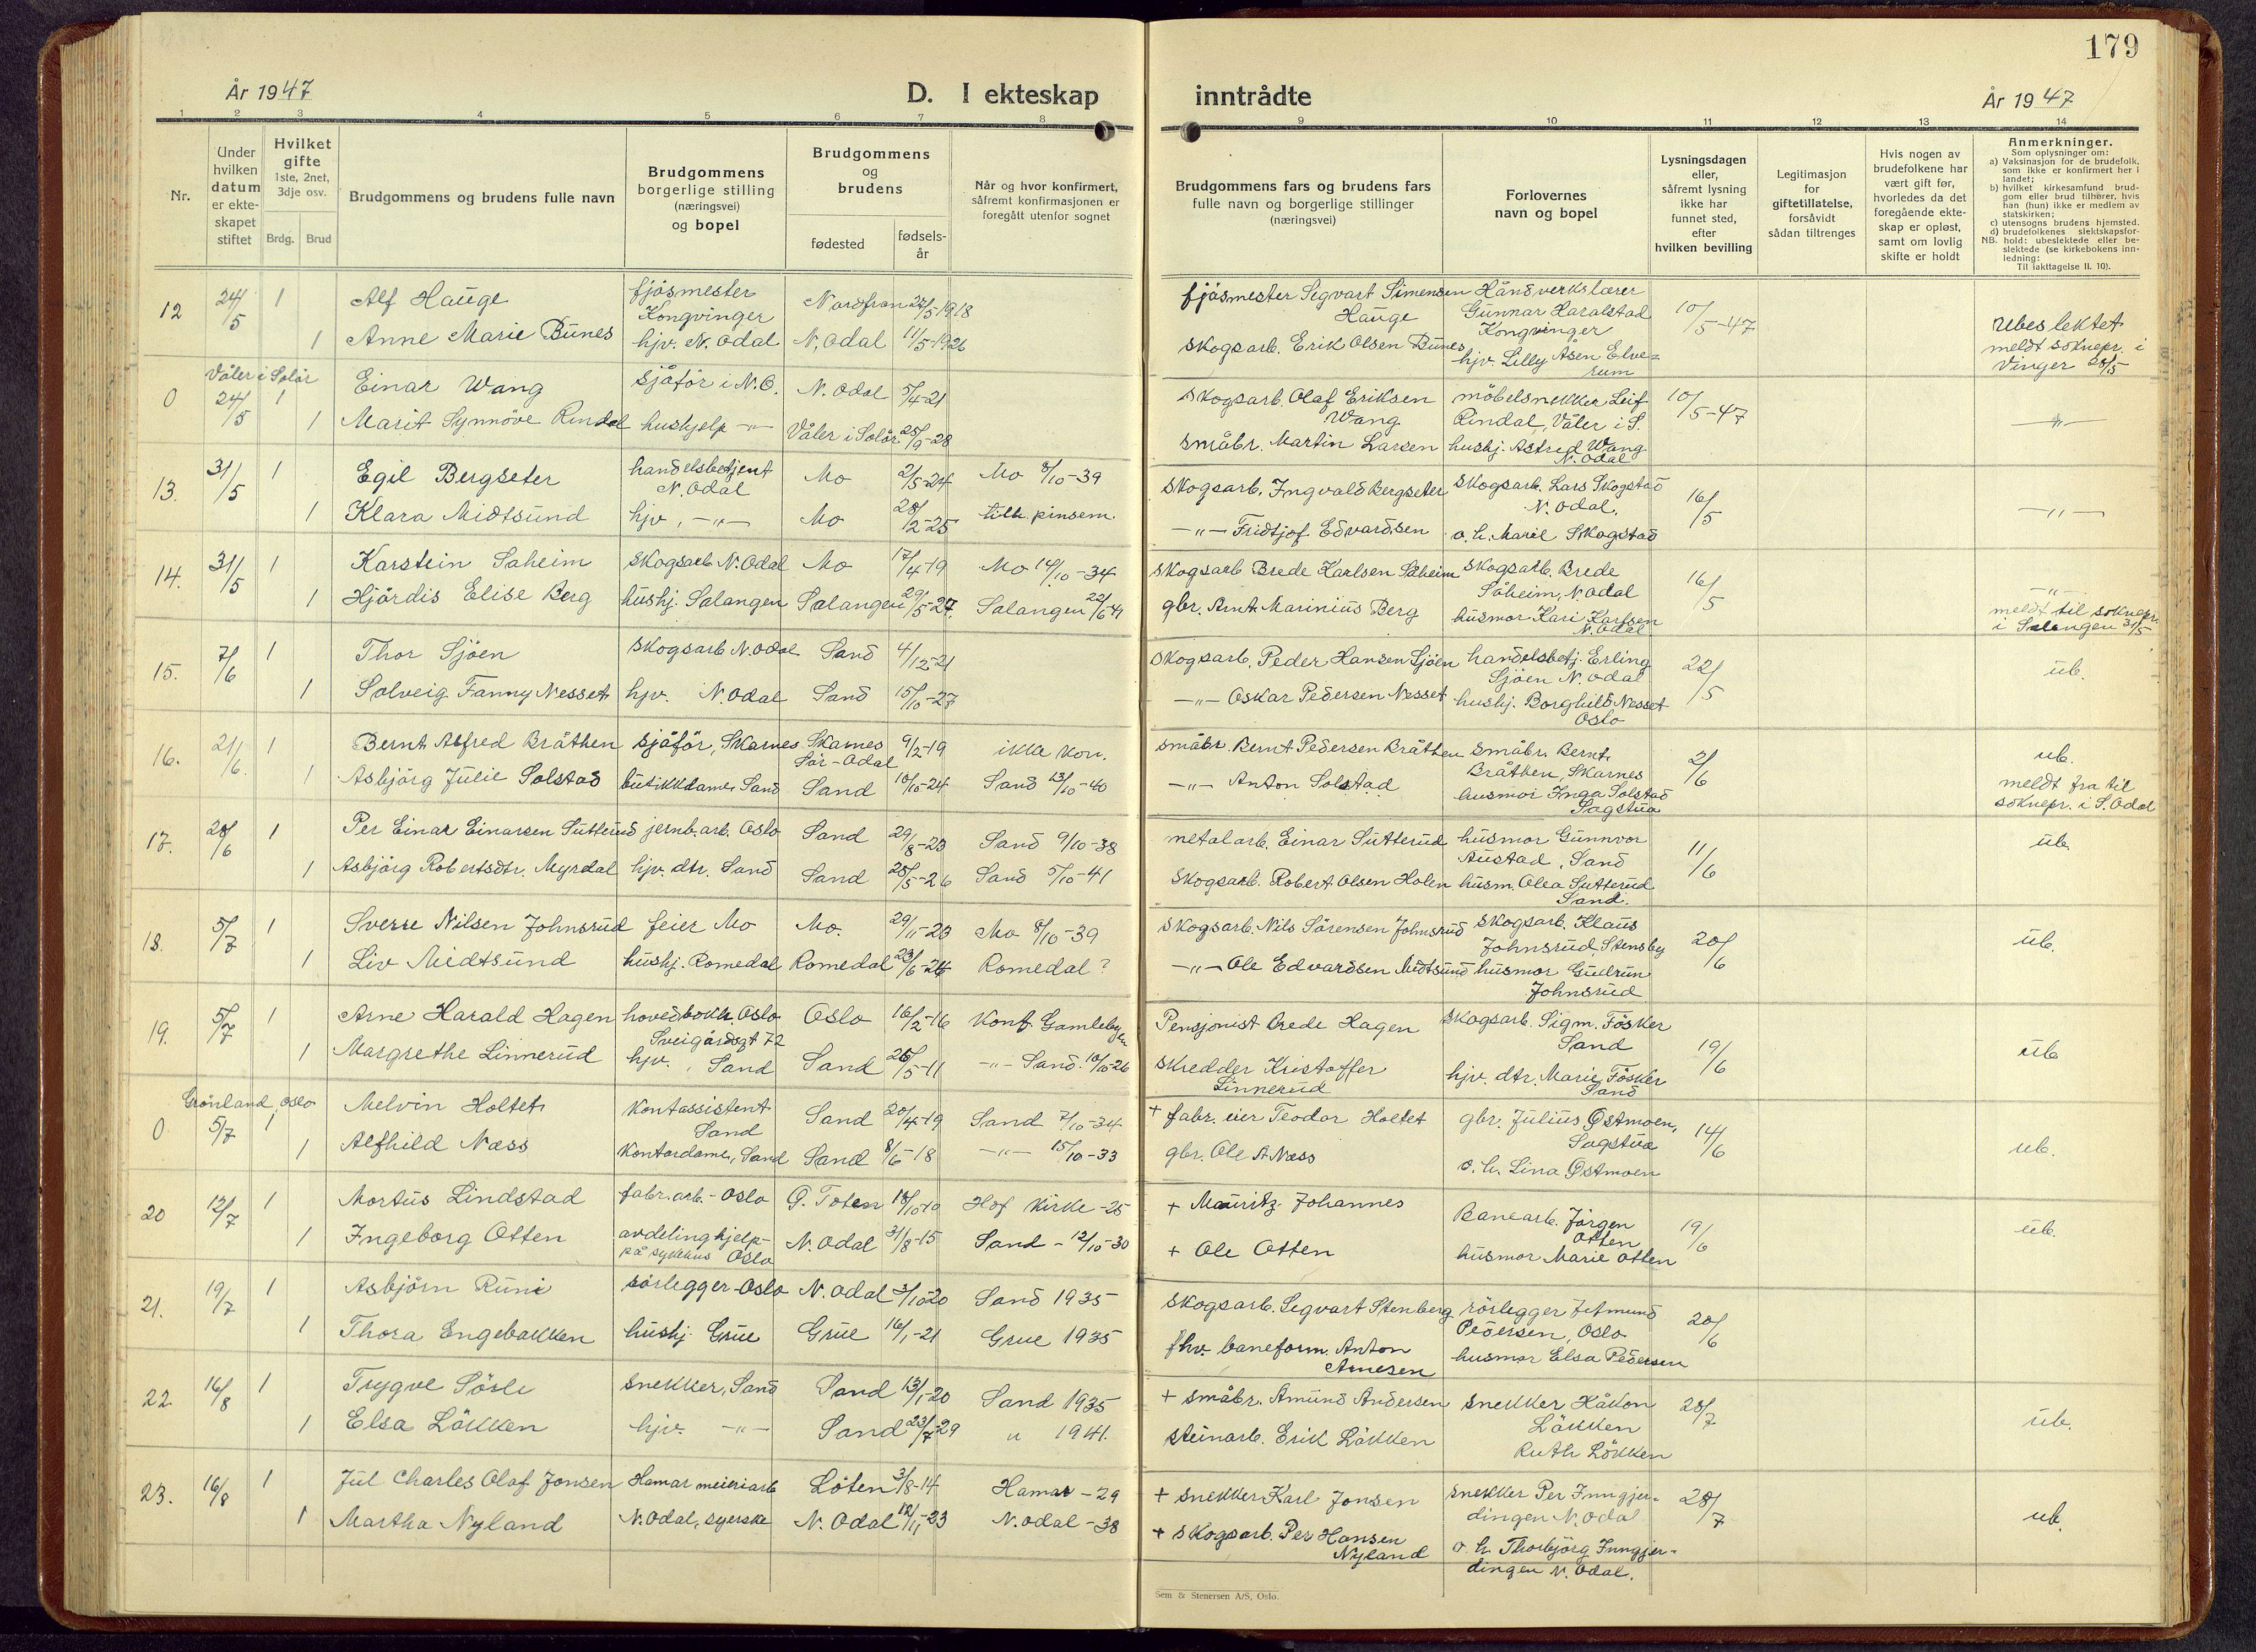 179
År 1947
D. I ekteskap inntrådte
År 1947
1 2 3 4 5 6 7 8 9 10 11 12 13 14
Nr.
Under hvilken datum er ekte-skapet stiftet
Hvilket gifte 1ste, 2net, 3dje osv.
Brdg. Brud
Brudgommens og brudens fulle navn
Brudgommens borgerlige stilling (næringsvei) og bopel
Brudgommens og brudens
fødested
fødsels-år
Når og hvor konfirmert, såfremt konfirmasjonen er foregått utenfor sognet
Brudgommens fars og brudens fars fulle navn og borgerlige stillinger (næringsvei)
Forlovernes navn og bopel
Lysningsdagen eller, såfremt lysning ikke har funnet sted, efter hvilken bevilling
Legitimasjon for giftetillatelse, forsåvidt sådan tiltrenges
Hvis nogen av brudefolkene har vært gift før, hvorledes da det foregående ekte-skap er opløst, samt om lovlig skifte er holdt
Anmerkninger.
Som oplysninger om:
a) Vaksinasjon for de brudefolk, som ikke er konfirmert her i landet;
b) hvilket kirkesamfund brud-gom eller brud tilhører, hvis han (hun) ikke er medlem av statskirken;
c) utensogns brudens hjemsted.
d) brudefolkenes slektskapsfor-hold: ubeslektede eller be-slektede (se kirkebokens inn-ledning:
NB. Til iakttagelse II. 10).
12 24/5 1 Alf Hauge fjøsmester Kongvinger Nordfron 24/5-1918 fjøsmester Segvart Simensen Hauge Håndverkslærer Gunnar Haralstad Kongvinger 10/5-47 ubeslektet
1 Anne Marie Bunes hjv. N. Odal N. Odal 11/5-1926 skogsarb. Erik Olsen Bunes hjv. Lilly Åsen Elverum meldt soknepr. i Vinger 28/5
Våler i Solør
0 24/5 1 Einar Wang sjåfør i N.O. N. Odal 5/4-21 skogsarb. Olaf Eriksen Wang möbelsnekker Leif Rindal, Våler i S. 10/5-47 -"-
1 Marit Synnöve Rindal hushjelp -"- Våler i Solör 25/9-28 småbr. Martin Larsen hushj. Astred Wang N. Odal
13. 31/5 1 Egil Bergseter handelsbetjent N. Odal Mo 2/5-24 Mo 8/10-39 skogsarb. Ingvald Bergseter skogsarb. Lars Skogstad N. Odal. 16/5 -"-
1 Klara Midtsund hjv. -"- Mo 28/2-25 tilh. pinsem. -"- Fridtjof Edvardsen o. h. Marie Skogstad
14. 31/5 1 Karstein Saheim skogsarb N. Odal Mo 17/4-19 Mo 14/10-34 skogsarb Brede Karlsen Såheim skogsarb. Brede Såheim, N. Odal 16/5 -"-
1 Hjördis Elise Berg hushj. Salangen Salangen 29/5-27. Salangen 22/6-41 gbr. Arnt Marinius Berg husmor Kari Karlsen N. Odal meldt til soknepr. i Salangen 31/5
15. 7/6 1 Thor Sjöen skogsarb N. Odal Sand 4/12-21 skogsarb. Peder Hansen Sjöen handelsbetj. Erling Sjöen N. Odal 22/5 ub.
1 Solveig Fanny Nesset hjv. N. Odal Sand 15/10-27 -"- Oskar Pedersen Nesset hushj. Borghild Nesset Oslo
16. 21/6. 1 Bernt Alfred Bråthen sjåför, Skarnes Skarnes Sør-Odal 9/2-19 ikke kon. småbr. Bernt Pedersen Bråthen småbr. Bernt Bråthen, Skarnes 2/6 ub.
1 Asbjörg Julie Solstad butikkdame Sand Sand 10/10-24 Sand 13/10-40 -"- Anton Solstad husmor Inga Solstad Sagstua meldt fra til soknepr. i S. Odal
17. 28/6 1 Per Einar Einarsen Sutterud jernb. arb. Oslo Sand 29/8-23 Sand 9/10-38 metalarb. Einar Sutterud husmor Gunnvor Austad, Sand 11/6 ub.
1 Asbjörg Robertsdtr. Myrdal hjv. dtr. Sand Sand 28/5-26 Sand 5/10-41 skogsarb. Robert Olsen Holen husm. Olea Sutterud Sand.
18. 5/7 1 Sverre Nilsen Johnsrud feier Mo Mo. 29/11-23 Mo 8/10-39 skogsarb. Nils Sörensen Johnsrud skogsarb. Klaus Johnsrud, Stensby 20/6 ub.
1 Liv Midtsund hushj. Romedal Romedal 23/6-24 Romedal? -"- Ole Edvardsen Midtsund husmor Gudrun Johnsrud
19. 5/7 1 Arne Harald Hagen hovedbokh. Oslo Sveigårdsgt 72 Oslo 16/2-16 Konf. Gamlebyen Pensjonist Brede Hagen skogsarb. Sigm. Fösker Sand 19/6 ub
1 Margrethe Linnerud hjv. , Sand Sand 26/5-11 -"- Sand. 10/10-26 skredder Kristoffer Linnerud hjv. dtr. Marie Fösker Sand
Grönland, Oslo
0 5/7 1 Melvin Holtet Kontassistent Sand Sand 20/4-19 Sand 7/10-34 + fabr. eier Teodor Holtet gbr. Julius Østmoen, Sagstua 14/6 ub.
1 Alfhild Næss Kontordame, Sand Sand 8/6-18 -"- 15/10-33 gbr. Ole A Næss o. h. Lina Østmoen
20 12/7 1 Mortus Lindstad fabr. arb. - Oslo Ø. Toten 18/10-10 Hof kirke -25 + Mauritz Johannes Banearb. Jörgen Otten 19/6 ub.
1 Ingeborg Otten avdelinghjelp- på sykehus Oslo N. Odal 31/8-15 Sand - 12/10-30 + Ole Otten husmor Marie Otten
21. 19/7 1 Asbjörn Runi rörlegger-Oslo N. Odal 3/10-20 Sand 1935 skogsarb. Segvart Stenberg rörlegger Jetmund Pedersen, Oslo 20/6
1 Thora Engebakken hushj. Grue Grue 16/1-21 Grue 1935 fhv. baneform. Anton Arnesen husmor Elsa Pedersen
22 16/8 1 Trygve Sörli snekker, Sand Sand 13/1-20 Sand 1935 + småbr. Amund Andersen snekker Håkon Lökken 28/7 ub.
1 Elsa Lökken hjv. -"- Sand 23/7-29 " 1941. steinarb. Erik Lökken Ruth Lökken
23. 16/8 1 Jul Charles Olaf Jonsen Hamar meieriarb Löten 3/8-14 Hamar - 29 + snekker Karl Jonsen snekker Per Inngjerdingen N. Odal 28/7 ub.
1 Martha Nyland N. Odal, syerske N. Odal 12/11-23 N. Odal - 38 + skogsarb. Per Hansen Nyland o. h. Thorbjörg Inngjer-dingen N. Odal.
Sem & Stenersen A/S, Oslo.